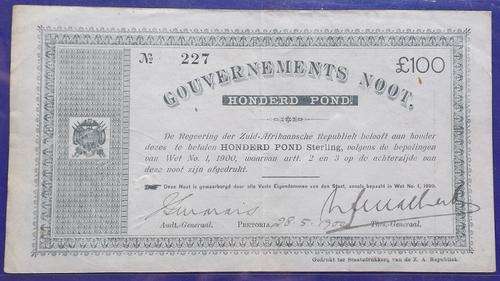 № 227
£100
GOUVERNEMENTS NOOT.
HONDERD POND.
De Regeering der Zuid-Afrikaansche Republiek belooft aan houder
dezes te betalen HONDERD POND Sterling, volgens de bepalingen
van Wet No. 1, 1900, waarvan artt. 2 en 3 op de achterzijde van
deze noot zijn afgedrukt.
Deze Noot is gewaarborgd door alle Vaste Eigendommen van den Staat, zooals bepaalt in Wet No. 1, 1900.
Audt.-Generaal. PRETORIA, 28.5.1900 Thes.-Generaal.
Gedrukt ter Staatsdrukkerij van de Z. A. Republiek.